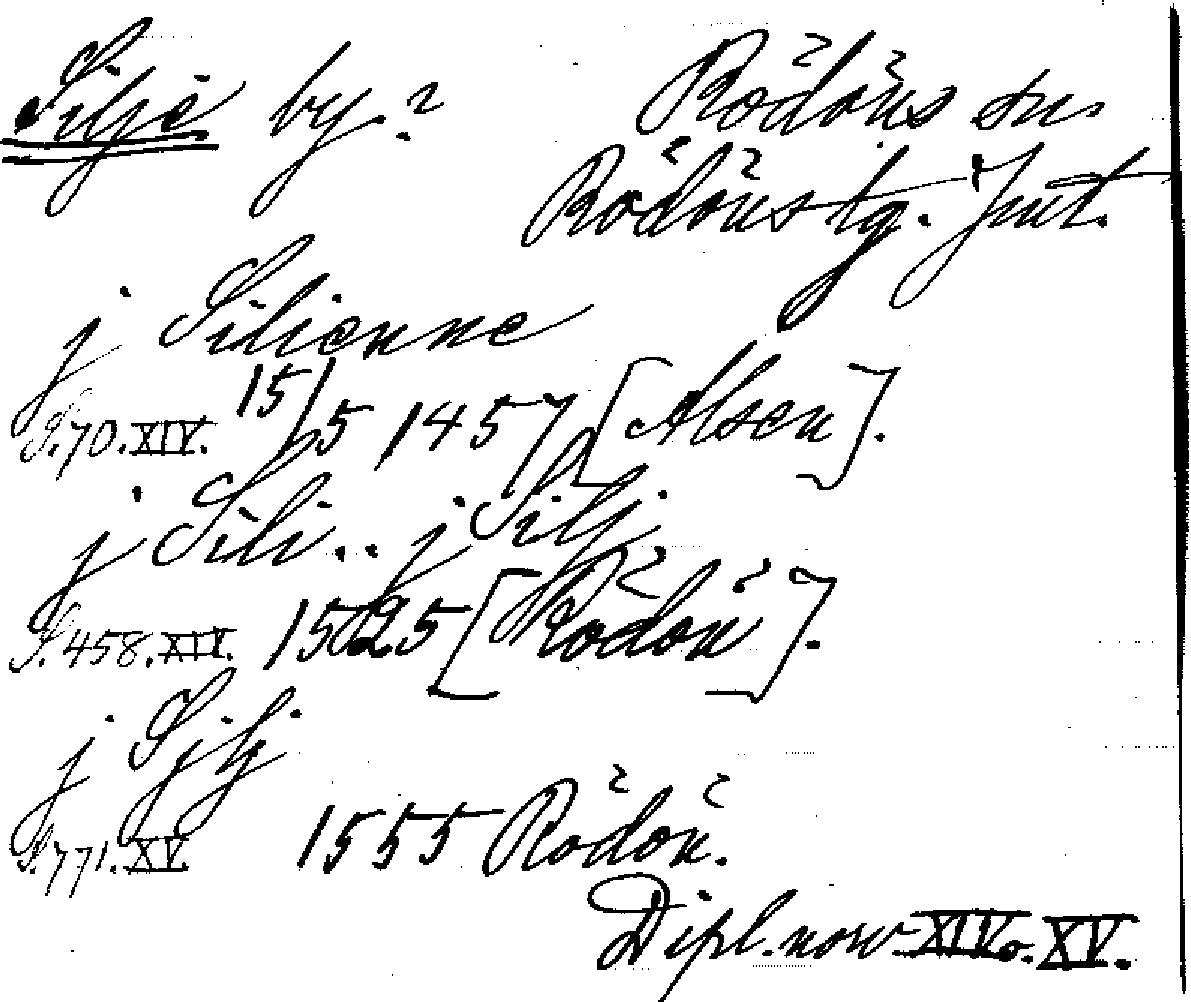 Silje by.? Rödöns sn
Rödöns tg. Jmt.
j Silienne
S.70.XIV. 15/5 1457 [Alsen].
j Sili.. j Silj
S.458.XIV. 1525 [Rödön].
j Sjlj
S.771.XV. 1555 Rödön.
Dipl. norv. XIV o. XV.